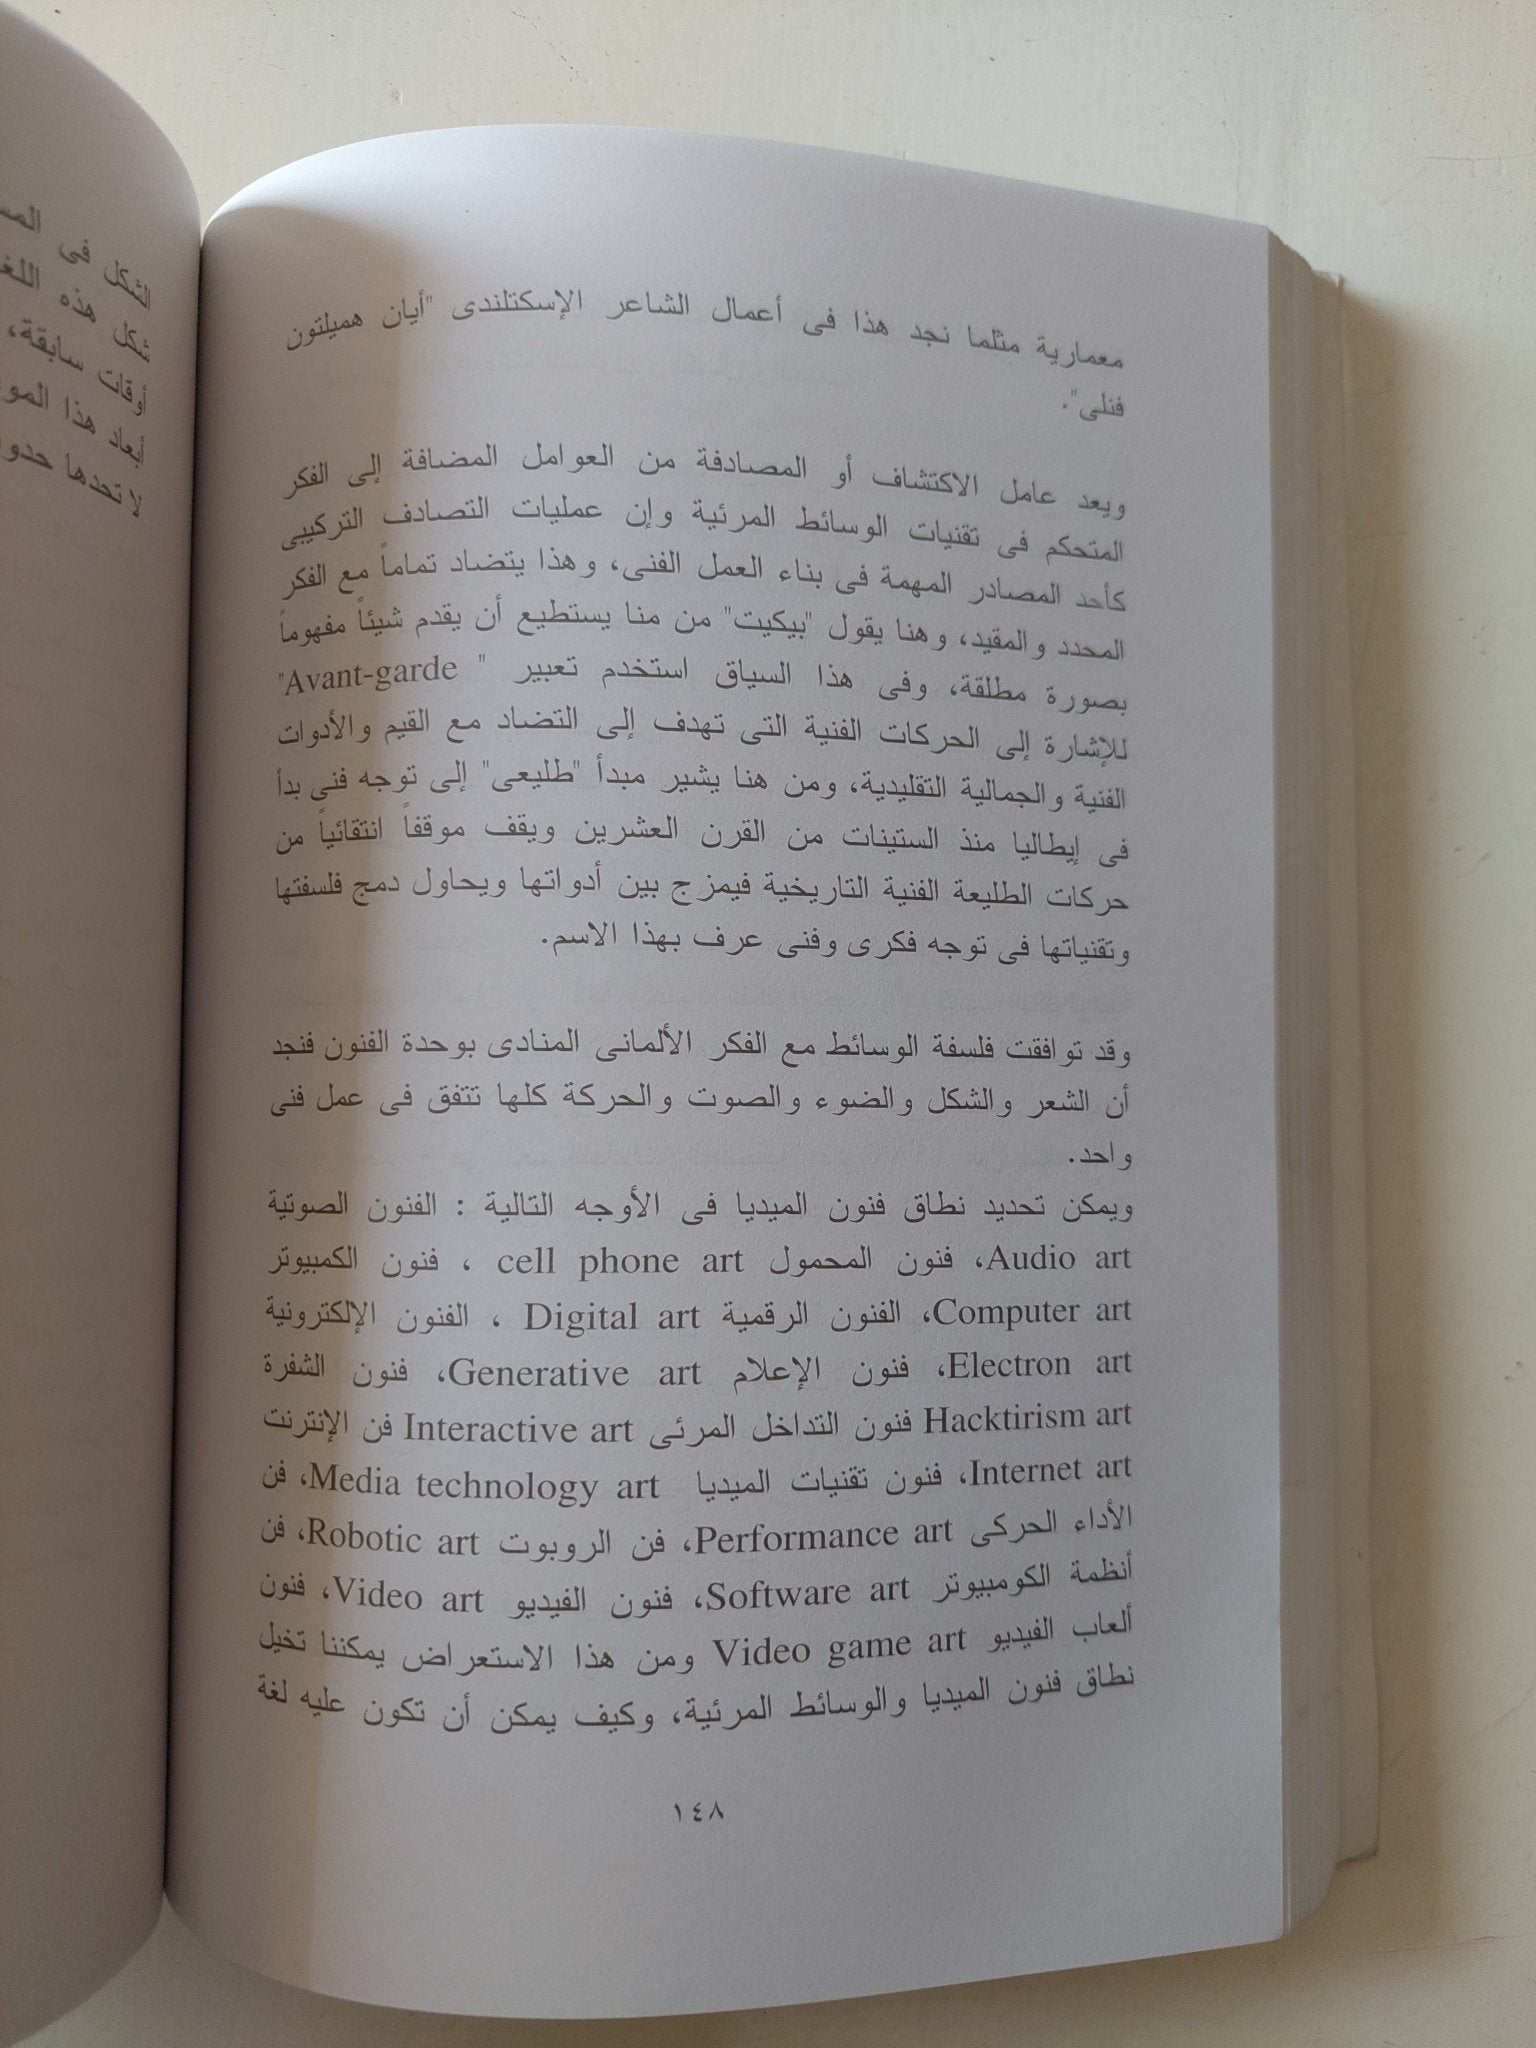 الشكل فى
شكل هذه
أوقات سابقة،
أبعاد هذا
لا تحدها
معمارية مثلما نجد هذا فى أعمال الشاعر الإسكتلندى "أيان هميلتون
فنلى".
ويعد عامل الاكتشاف أو المصادفة من العوامل المضافة إلى الفكر
المتحكم فى تقنيات الوسائط المرئية وإن عمليات التصادف التركيبى
كأحد المصادر المهمة فى بناء العمل الفنى، وهذا يتضاد تماماً مع الفكر
المحدد والمقيد، وهنا يقول "بيكيت" من منا يستطيع أن يقدم شيئاً مفهوماً
بصورة مطلقة، وفى هذا السياق استخدم تعبير " Avant-garde"
للإشارة إلى الحركات الفنية التى تهدف إلى التضاد مع القيم والأدوات
الفنية والجمالية التقليدية، ومن هنا يشير مبدأ "طليعى" إلى توجه فنى بدأ
فى إيطاليا منذ الستينات من القرن العشرين ويقف موقفاً انتقائياً من
حركات الطليعة الفنية التاريخية فيمزج بين أدواتها ويحاول دمج فلسفتها
وتقنياتها فى توجه فكرى وفنى عرف بهذا الاسم.
وقد توافقت فلسفة الوسائط مع الفكر الألمانى المنادى بوحدة الفنون فنجد
أن الشعر والشكل والضوء والصوت والحركة كلها تتفق فى عمل فنى
واحد.
ويمكن تحديد نطاق فنون الميديا فى الأوجه التالية : الفنون الصوتية
Audio art، فنون المحمول cell phone art ، فنون الكمبيوتر
Computer art، الفنون الرقمية Digital art ، الفنون الإلكترونية
Electron art، فنون الإعلام Generative art، فنون الشفرة
Hacktirism art فنون التداخل المرئى Interactive art فن الإنترنت
Internet art، فنون تقنيات الميديا Media technology art، فن
الأداء الحركى Performance art، فن الروبوت Robotic art، فن
أنظمة الكومبيوتر Software art، فنون الفيديو Video art، فنون
ألعاب الفيديو Video game art ومن هذا الاستعراض يمكننا تخيل
نطاق فنون الميديا والوسائط المرئية، وكيف يمكن أن تكون عليه لغة
١٤٨